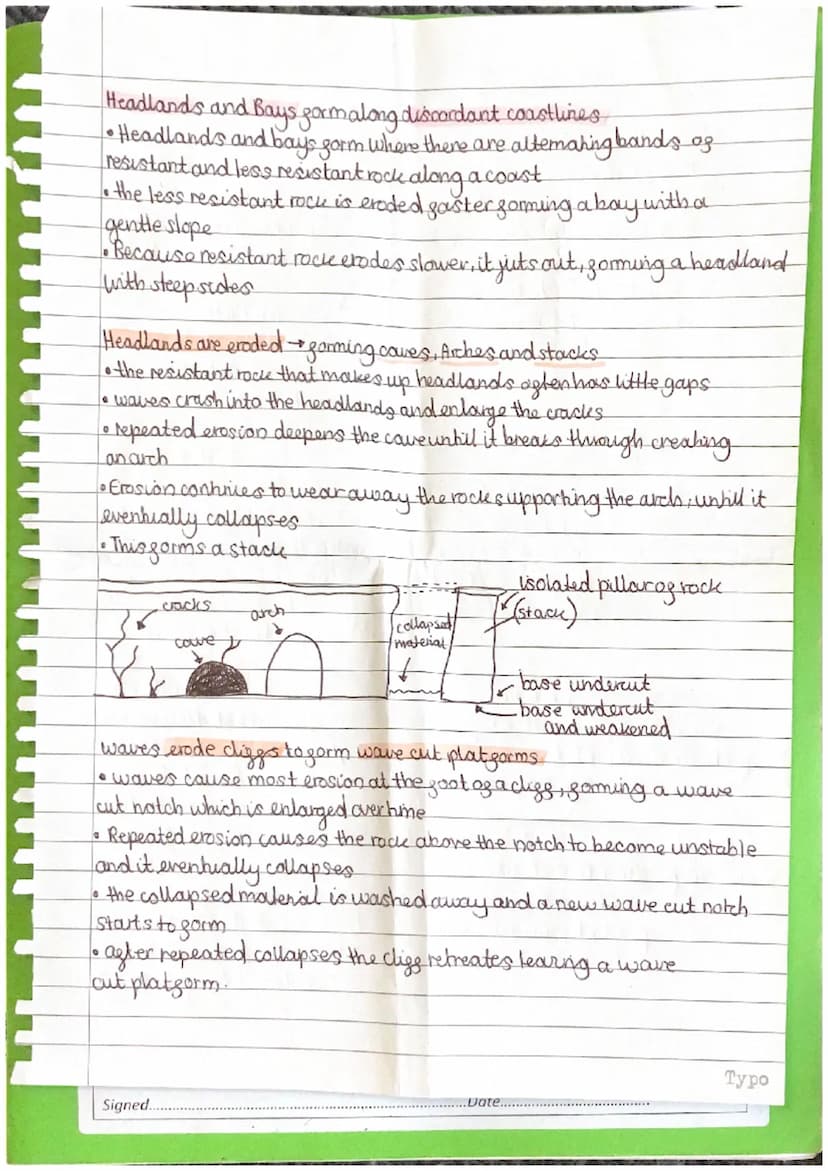 Headlands and Bays form along discordant coastlines
• Headlands and bays form where there are alternating bands of
resistant and less resistant rock along a coast
• the less resistant rock is eroded faster forming a bay with a
gentle slope
• Because resistant rock erodes slower, it juts out, forming a headland
with steep sides
Headlands are eroded → forming caves, Arches and stacks
• the resistant rock that makes up headlands often has little gaps
• waves crash into the headlands and enlarge the cracks
• repeated erosion deepens the cave until it breaks through creating
an arch
• Erosion continies to wear away the rock supporting the arch, until it
eventually collapses
• This forms a stack
cracks
arch
cave
collapsed
material
isolated pillar of rock
(stack)
base undercut
base undercut
and weakened
waves erode cliffs to form wave cut platforms
• waves cause most erosion at the foot of a cliff, forming a wave
cut notch which is enlarged overtime
• Repeated erosion causes the rock above the notch to become unstable
and it eventually collapses
• the collapsed material is washed away and a new wave cut notch
starts to form
• after repeated collapses the cliff retreates leaving a wave
cut platform.
Typo
Signed.......... Date..........